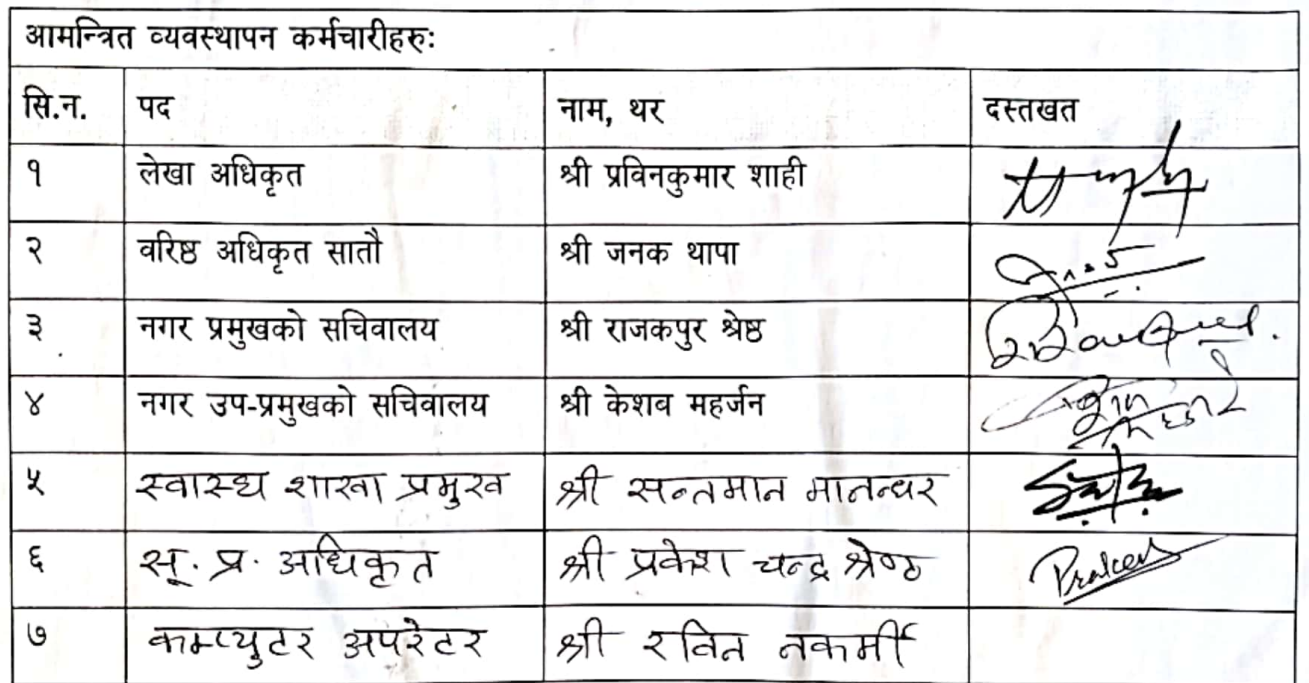 आमन्त्रित व्यवस्थापन कर्मचारीहरुः
सि.न. पद नाम, थर दस्तखत
१ लेखा अधिकृत श्री प्रविनकुमार शाही
२ वरिष्ठ अधिकृत सातौ श्री जनक थापा
३ नगर प्रमुखको सचिवालय श्री राजकपुर श्रेष्ठ
४ नगर उप-प्रमुखको सचिवालय श्री केशव महर्जन
५ स्वास्थ शाखा प्रमुख श्री सन्तमान मानन्धर
६ सू. प्र. अधिकृत श्री प्रकेश चन्द्र श्रेष्ठ
७ कम्प्युटर अपरेटर श्री रविन नकर्मी